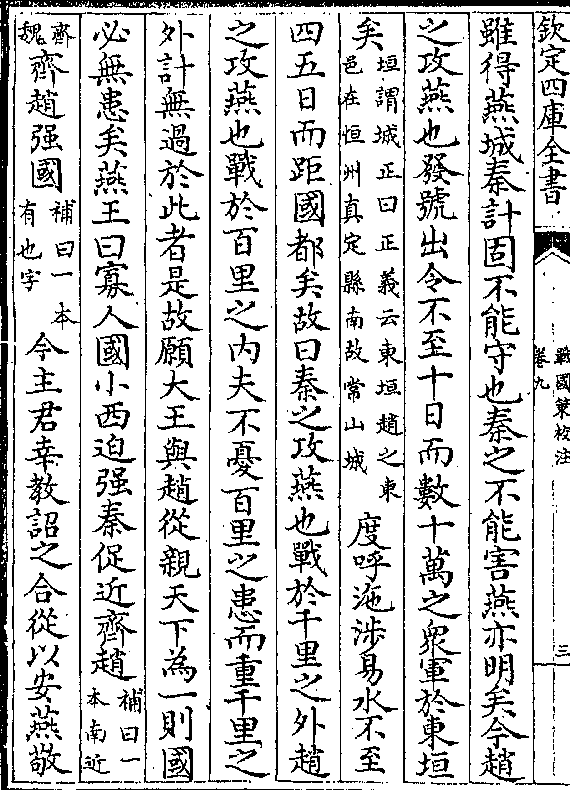 欽定四庫全書
戰國策校注
卷九
三
雖得燕城秦計固不能守也秦之不能害燕亦明矣今趙
之攻燕也發號出令不至十日而數十萬之衆軍於東垣
矣垣謂城正曰正義云東垣趙之東邑在恒州真定縣南故常山城度呼沲涉易水不至
四五日而距國都矣故曰秦之攻燕也戰於千里之外趙
之攻燕也戰於百里之内夫不憂百里之患而重千里之
外計無過於此者是故願大王與趙從親天下為一則國
必無患矣燕王曰寡人國小西迫强秦促近齊趙補曰一本南近
齊魏齊趙强國補曰一本有也字今主君幸教詔之合從以安燕敬